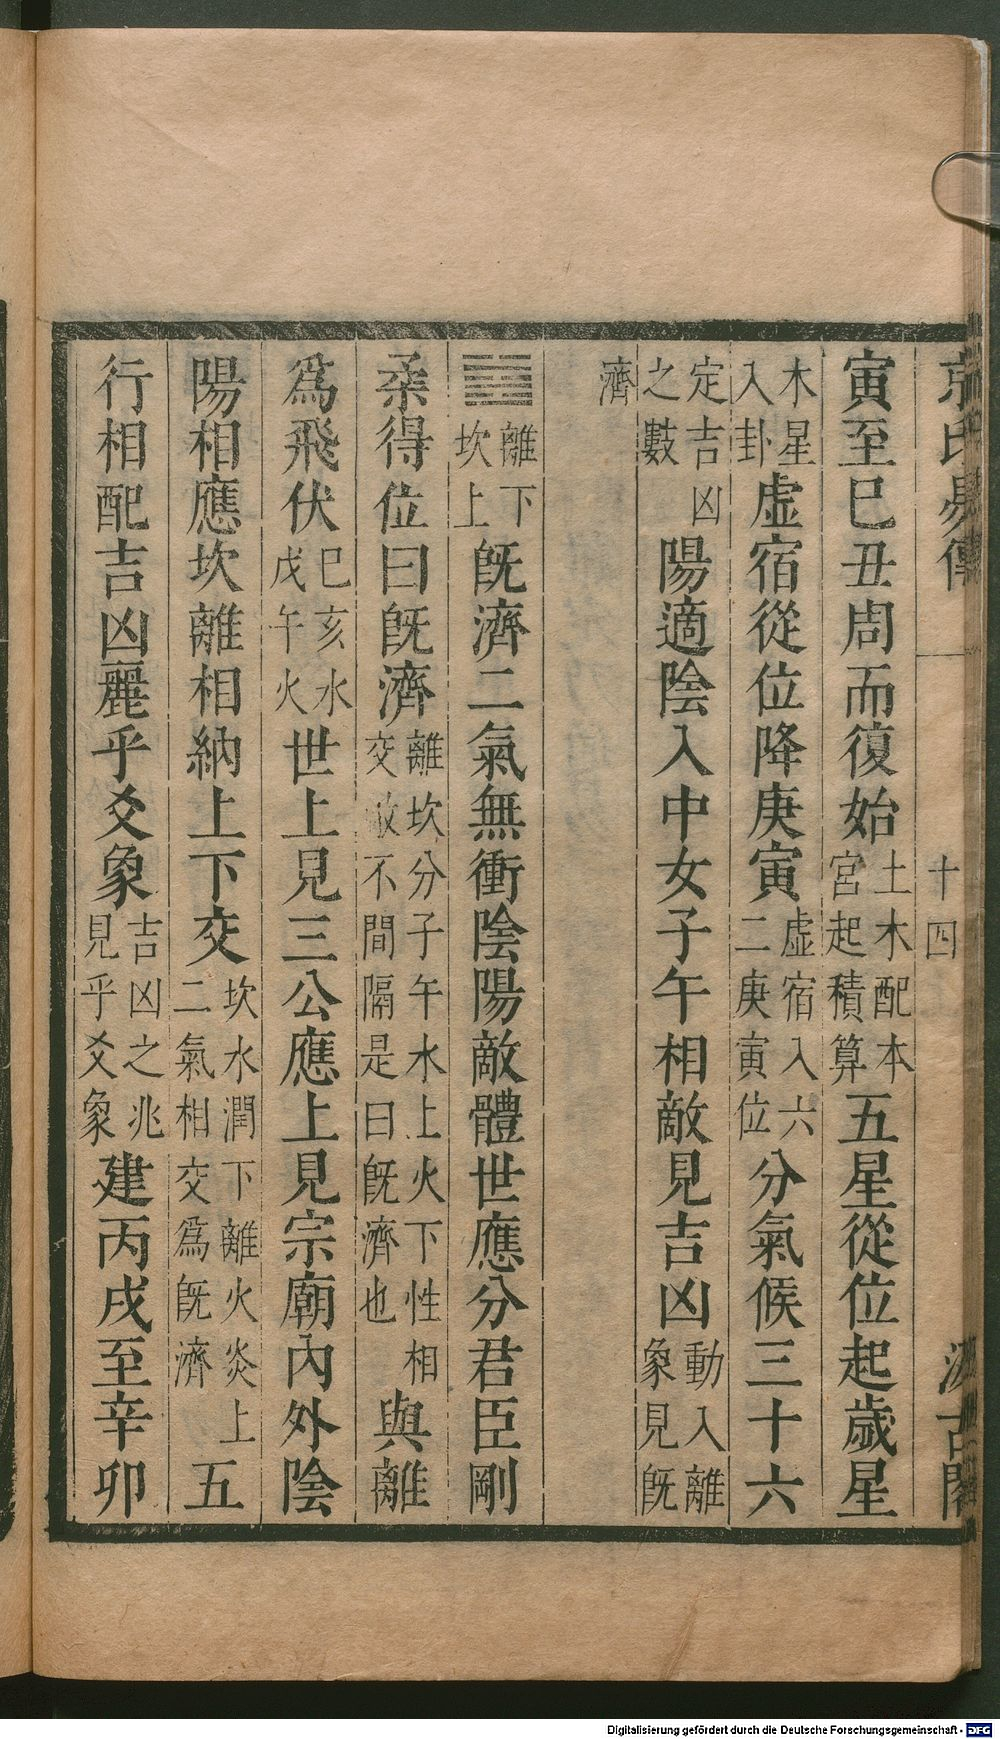 京氏易傳 十四 汲古閣
寅至巳丑周而復始土木配本宮起積算五星從位起歲星
木星入卦虛宿從位降庚寅虛宿入六二庚寅位分氣候三十六
定吉凶之數陽適陰入中女子午相敵見吉凶動入離象見旣
濟
䷾離下坎上旣濟二氣無衝陰陽敵體世應分君臣剛
柔得位曰旣濟離坎分子午水上火下性相交敵不間隔是曰旣濟也與離
爲飛伏巳亥水戊午火世上見三公應上見宗廟內外陰
陽相應坎離相納上下交坎水潤下離火炎上二氣相交爲旣濟五
行相配吉凶麗乎爻象吉凶之兆見乎爻象建丙戌至辛卯
Digitalisierung gefördert durch die Deutsche Forschungsgemeinschaft - DFG